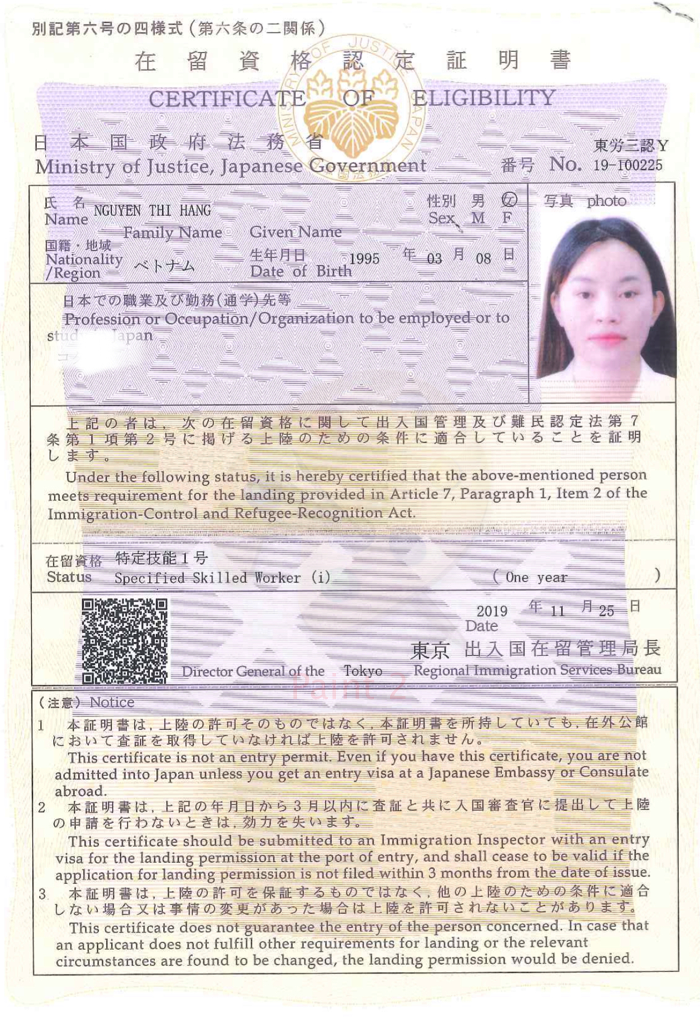 別記第六号の四様式（第六条の二関係）
在留資格認定証明書
CERTIFICATE OF ELIGIBILITY
MINISTRY OF JUSTICE JAPAN
日本国政府法務省
Ministry of Justice, Japanese Government
東労三認Y
番号 No. 19-100225
氏名 NGUYEN THI HANG 性別 男 女 写真 photo
Name Family Name Given Name Sex M F
国籍・地域 ベトナム 生年月日 1995 年 03 月 08 日
Nationality/Region Date of Birth
日本での職業及び勤務（通学）先等
Profession or Occupation/Organization to be employed or to
Japan
上記の者は，次の在留資格に関して出入国管理及び難民認定法第７
条第１項第２号に掲げる上陸のための条件に適合していることを証明
します。
Under the following status, it is hereby certified that the above-mentioned person
meets requirement for the landing provided in Article 7, Paragraph 1, Item 2 of the
Immigration-Control and Refugee-Recognition Act.
在留資格 特定技能１号
Status Specified Skilled Worker (i) ( One year )
2019 年 11 月 25 日
Date
東京 出入国在留管理局長
Director General of the Tokyo Regional Immigration Services Bureau
（注意）Notice
1 本証明書は，上陸の許可そのものではなく，本証明書を所持していても，在外公館
において査証を取得していなければ上陸を許可されません。
This certificate is not an entry permit. Even if you have this certificate, you are not
admitted into Japan unless you get an entry visa at a Japanese Embassy or Consulate
abroad.
2 本証明書は，上記の年月日から３月以内に査証と共に入国審査官に提出して上陸
の申請を行わないときは，効力を失います。
This certificate should be submitted to an Immigration Inspector with an entry
visa for the landing permission at the port of entry, and shall cease to be valid if the
application for landing permission is not filed within 3 months from the date of issue.
3 本証明書は，上陸の許可を保証するものではなく，他の上陸のための条件に適合
しない場合又は事情の変更があった場合は上陸を許可されないことがあります。
This certificate does not guarantee the entry of the person concerned. In case that
an applicant does not fulfill other requirements for landing or the relevant
circumstances are found to be changed, the landing permission would be denied.